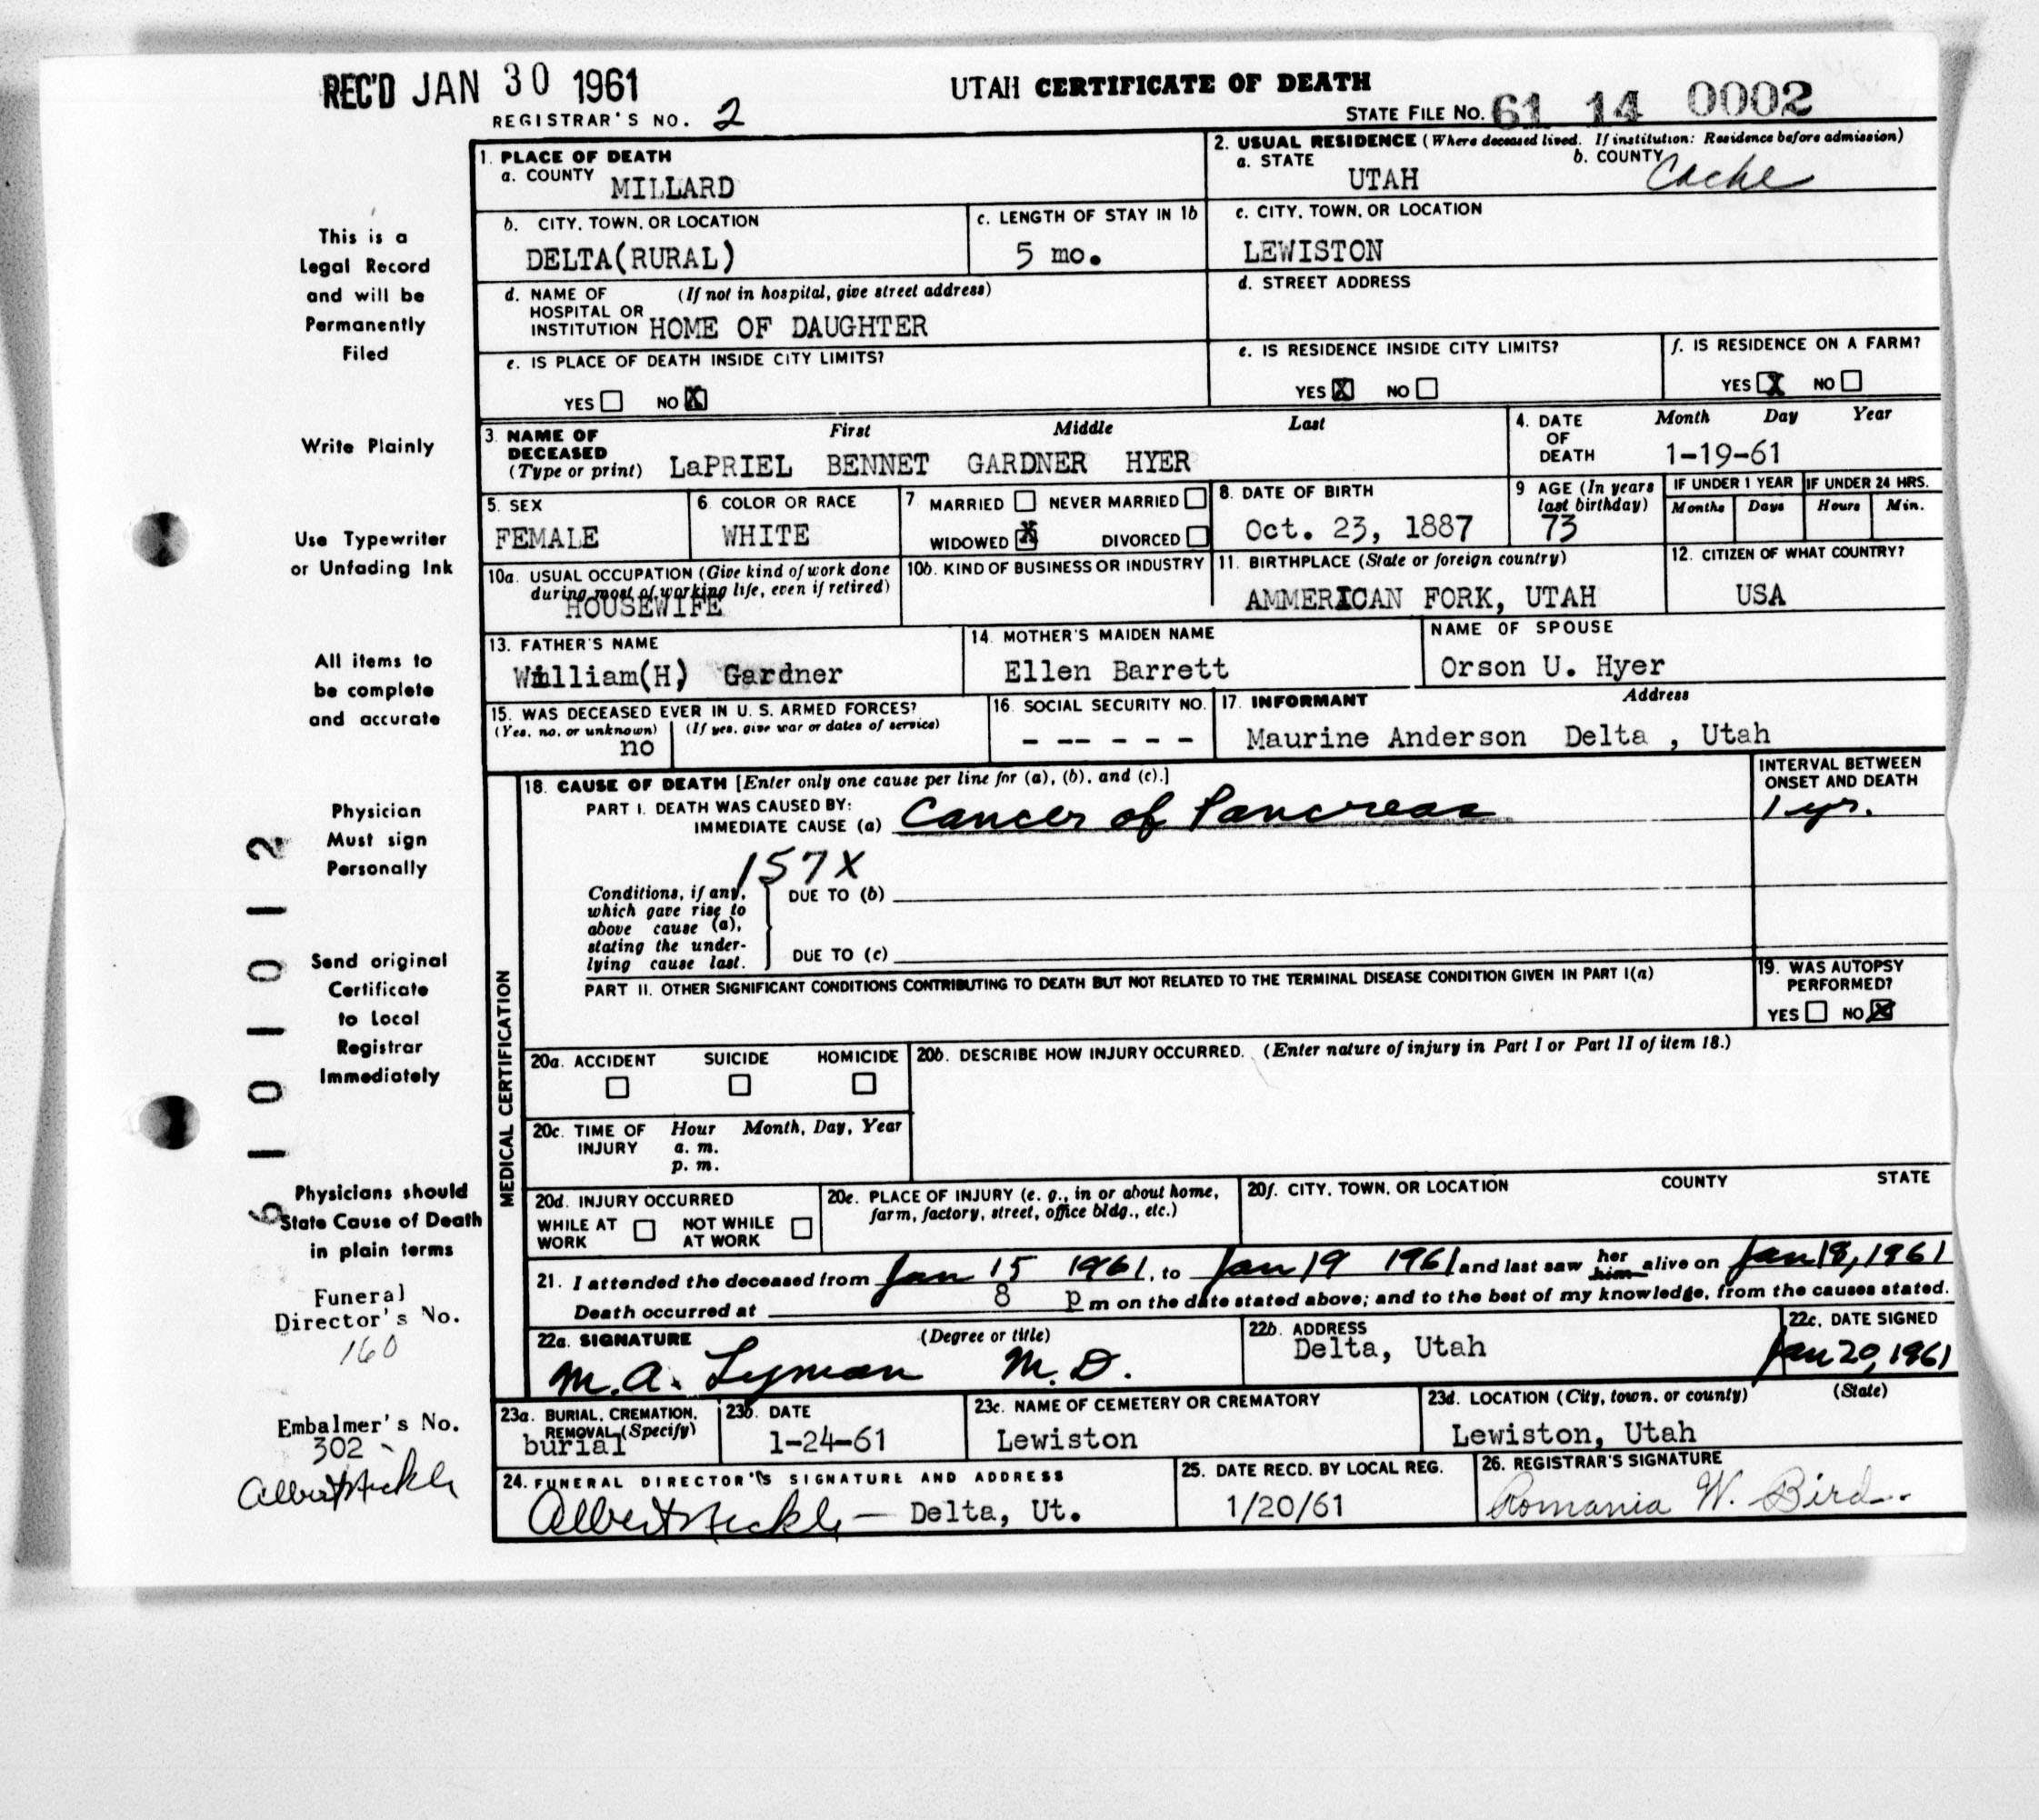 REC'D JAN 30 1961
UTAH CERTIFICATE OF DEATH
REGISTRAR'S NO. 2
STATE FILE NO. 61 14 0002
This is a
Legal Record
and will be
Permanently
Filed
Write Plainly
Use Typewriter
or Unfading Ink
All items to
be complete
and accurate
Physician
Must sign
Personally
Send original
Certificate
to Local
Registrar
Immediately
Physicians should
State Cause of Death
in plain terms
Funeral
Director's No.
160
Embalmer's No.
302
6101012
1. PLACE OF DEATH
a. COUNTY MILLARD
2. USUAL RESIDENCE (Where deceased lived. If institution: Residence before admission)
a. STATE UTAH
b. COUNTY Cache
b. CITY, TOWN, OR LOCATION
DELTA(RURAL)
c. LENGTH OF STAY IN 1b
5 mo.
c. CITY, TOWN, OR LOCATION
LEWISTON
d. NAME OF HOSPITAL OR INSTITUTION (If not in hospital, give street address)
HOME OF DAUGHTER
d. STREET ADDRESS
e. IS PLACE OF DEATH INSIDE CITY LIMITS?
YES NO X
e. IS RESIDENCE INSIDE CITY LIMITS?
YES X NO
f. IS RESIDENCE ON A FARM?
YES X NO
3. NAME OF DECEASED (Type or print)
First Middle Last
LaPRIEL BENNET GARDNER HYER
4. DATE OF DEATH Month Day Year
1-19-61
5. SEX
FEMALE
6. COLOR OR RACE
WHITE
7 MARRIED NEVER MARRIED
WIDOWED X DIVORCED
8. DATE OF BIRTH
Oct. 23, 1887
9 AGE (In years last birthday)
73
IF UNDER 1 YEAR
Months Days
IF UNDER 24 HRS.
Hours Min.
10a. USUAL OCCUPATION (Give kind of work done during most of working life, even if retired)
HOUSEWIFE
10b. KIND OF BUSINESS OR INDUSTRY
11. BIRTHPLACE (State or foreign country)
AMMERICAN FORK, UTAH
12. CITIZEN OF WHAT COUNTRY?
USA
13. FATHER'S NAME
William(H) Gardner
14. MOTHER'S MAIDEN NAME
Ellen Barrett
NAME OF SPOUSE
Orson U. Hyer
15. WAS DECEASED EVER IN U. S. ARMED FORCES?
(Yes, no, or unknown) (If yes, give war or dates of service)
no
16. SOCIAL SECURITY NO.
- -- - - -
17. INFORMANT Address
Maurine Anderson Delta , Utah
MEDICAL CERTIFICATION
18. CAUSE OF DEATH [Enter only one cause per line for (a), (b), and (c).]
PART I. DEATH WAS CAUSED BY:
IMMEDIATE CAUSE (a) Cancer of Pancreas
INTERVAL BETWEEN ONSET AND DEATH
1 yr.
157X
Conditions, if any, which gave rise to above cause (a), stating the underlying cause last.
DUE TO (b)
DUE TO (c)
PART II. OTHER SIGNIFICANT CONDITIONS CONTRIBUTING TO DEATH BUT NOT RELATED TO THE TERMINAL DISEASE CONDITION GIVEN IN PART I(a)
19. WAS AUTOPSY PERFORMED?
YES NO X
20a. ACCIDENT SUICIDE HOMICIDE
20b. DESCRIBE HOW INJURY OCCURRED. (Enter nature of injury in Part I or Part II of item 18.)
20c. TIME OF INJURY Hour Month, Day, Year
a. m.
p. m.
20d. INJURY OCCURRED
WHILE AT WORK NOT WHILE AT WORK
20e. PLACE OF INJURY (e. g., in or about home, farm, factory, street, office bldg., etc.)
20f. CITY, TOWN, OR LOCATION COUNTY STATE
21. I attended the deceased from Jan 15 1961, to Jan 19 1961 and last saw her him alive on Jan 18, 1961
Death occurred at 8 p m on the date stated above; and to the best of my knowledge, from the causes stated.
22a. SIGNATURE (Degree or title)
M. A. Lyman M. D.
22b. ADDRESS
Delta, Utah
22c. DATE SIGNED
Jan 20, 1961
23a. BURIAL, CREMATION, REMOVAL (Specify)
burial
23b. DATE
1-24-61
23c. NAME OF CEMETERY OR CREMATORY
Lewiston
23d. LOCATION (City, town, or county) (State)
Lewiston, Utah
24. FUNERAL DIRECTOR'S SIGNATURE AND ADDRESS
Albert — Delta, Ut.
25. DATE RECD. BY LOCAL REG.
1/20/61
26. REGISTRAR'S SIGNATURE
Romania W. Bird